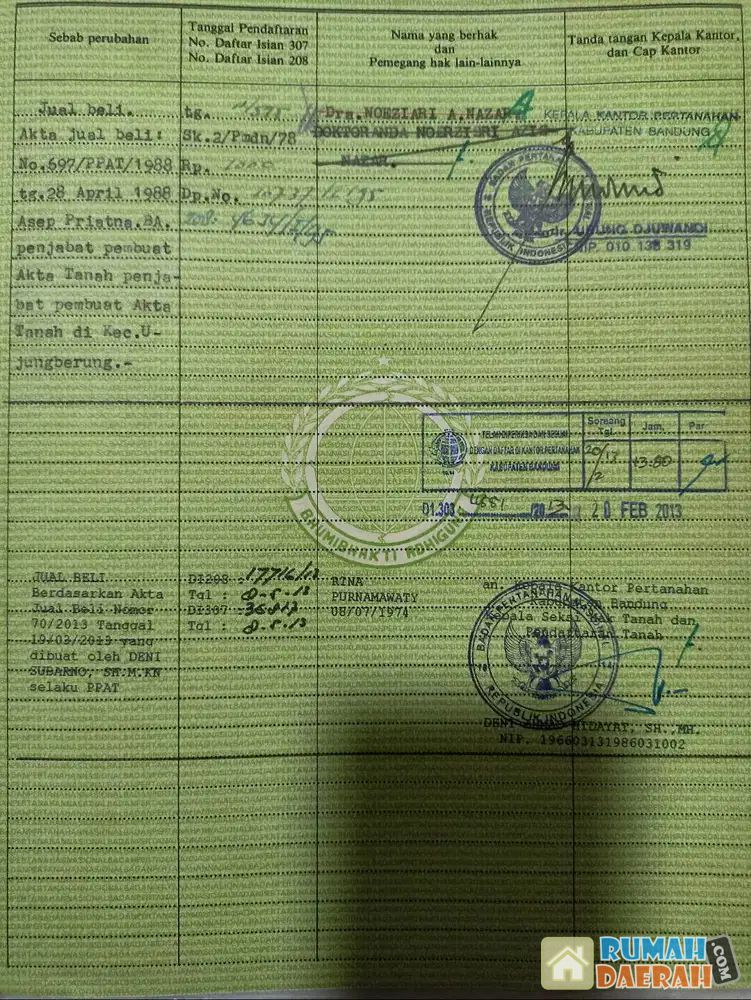 Sebab perubahan
Tanggal Pendaftaran
No. Daftar Isian 307
No. Daftar Isian 208
Nama yang berhak
dan
Pemegang hak lain-lainnya
Tanda tangan Kepala Kantor,
dan Cap Kantor
Jual beli.
Akta jual beli:
No.697/PPAT/1988
tg.28 April 1988
Asep Priatna.BA.
penjabat pembuat
Akta Tanah penja-
bat pembuat Akta
Tanah di Kec.U-
jungberung.-
tg.
Sk.2/Pmdn/78
Rp.
Dp.No.
208.
Drs.NOEZIARI A.NAZAR
DOKTORANDA
NAZAR.
KEPALA KANTOR PERTANAHAN
KABUPATEN BANDUNG
BADAN PERTANAHAN NASIONAL
REPUBLIK INDONESIA
DJUWANDI
NIP. 010 138 319
BHUMIBHAKTI ADHIGUNA
TELAH DIPERIKSA DAN SESUAI
DENGAN DAFTAR DI KANTOR PERTANAHAN
KABUPATEN BANDUNG
Soreang
Tgl.
Jam,
Par
D1.303
20 FEB 2013
JUAL BELI
Berdasarkan Akta
Jual Beli Nomor
70/2013 Tanggal
19/03/2013 yang
dibuat oleh DENI
SUBARNO, SH.M.KN
selaku PPAT
DI208 : 17716/13
Tgl : 8-5-13
DI307
Tgl : 8-5-13
RINA
PURNAMAWATY
08/07/1974
an. Kepala Kantor Pertanahan
Kabupaten Bandung
Kepala Seksi Hak Tanah dan
Pendaftaran Tanah
BADAN PERTANAHAN NASIONAL
REPUBLIK INDONESIA
DENI HIDAYAT, SH.,MH.
NIP. 196603131986031002
RUMAH
DAERAH
.COM